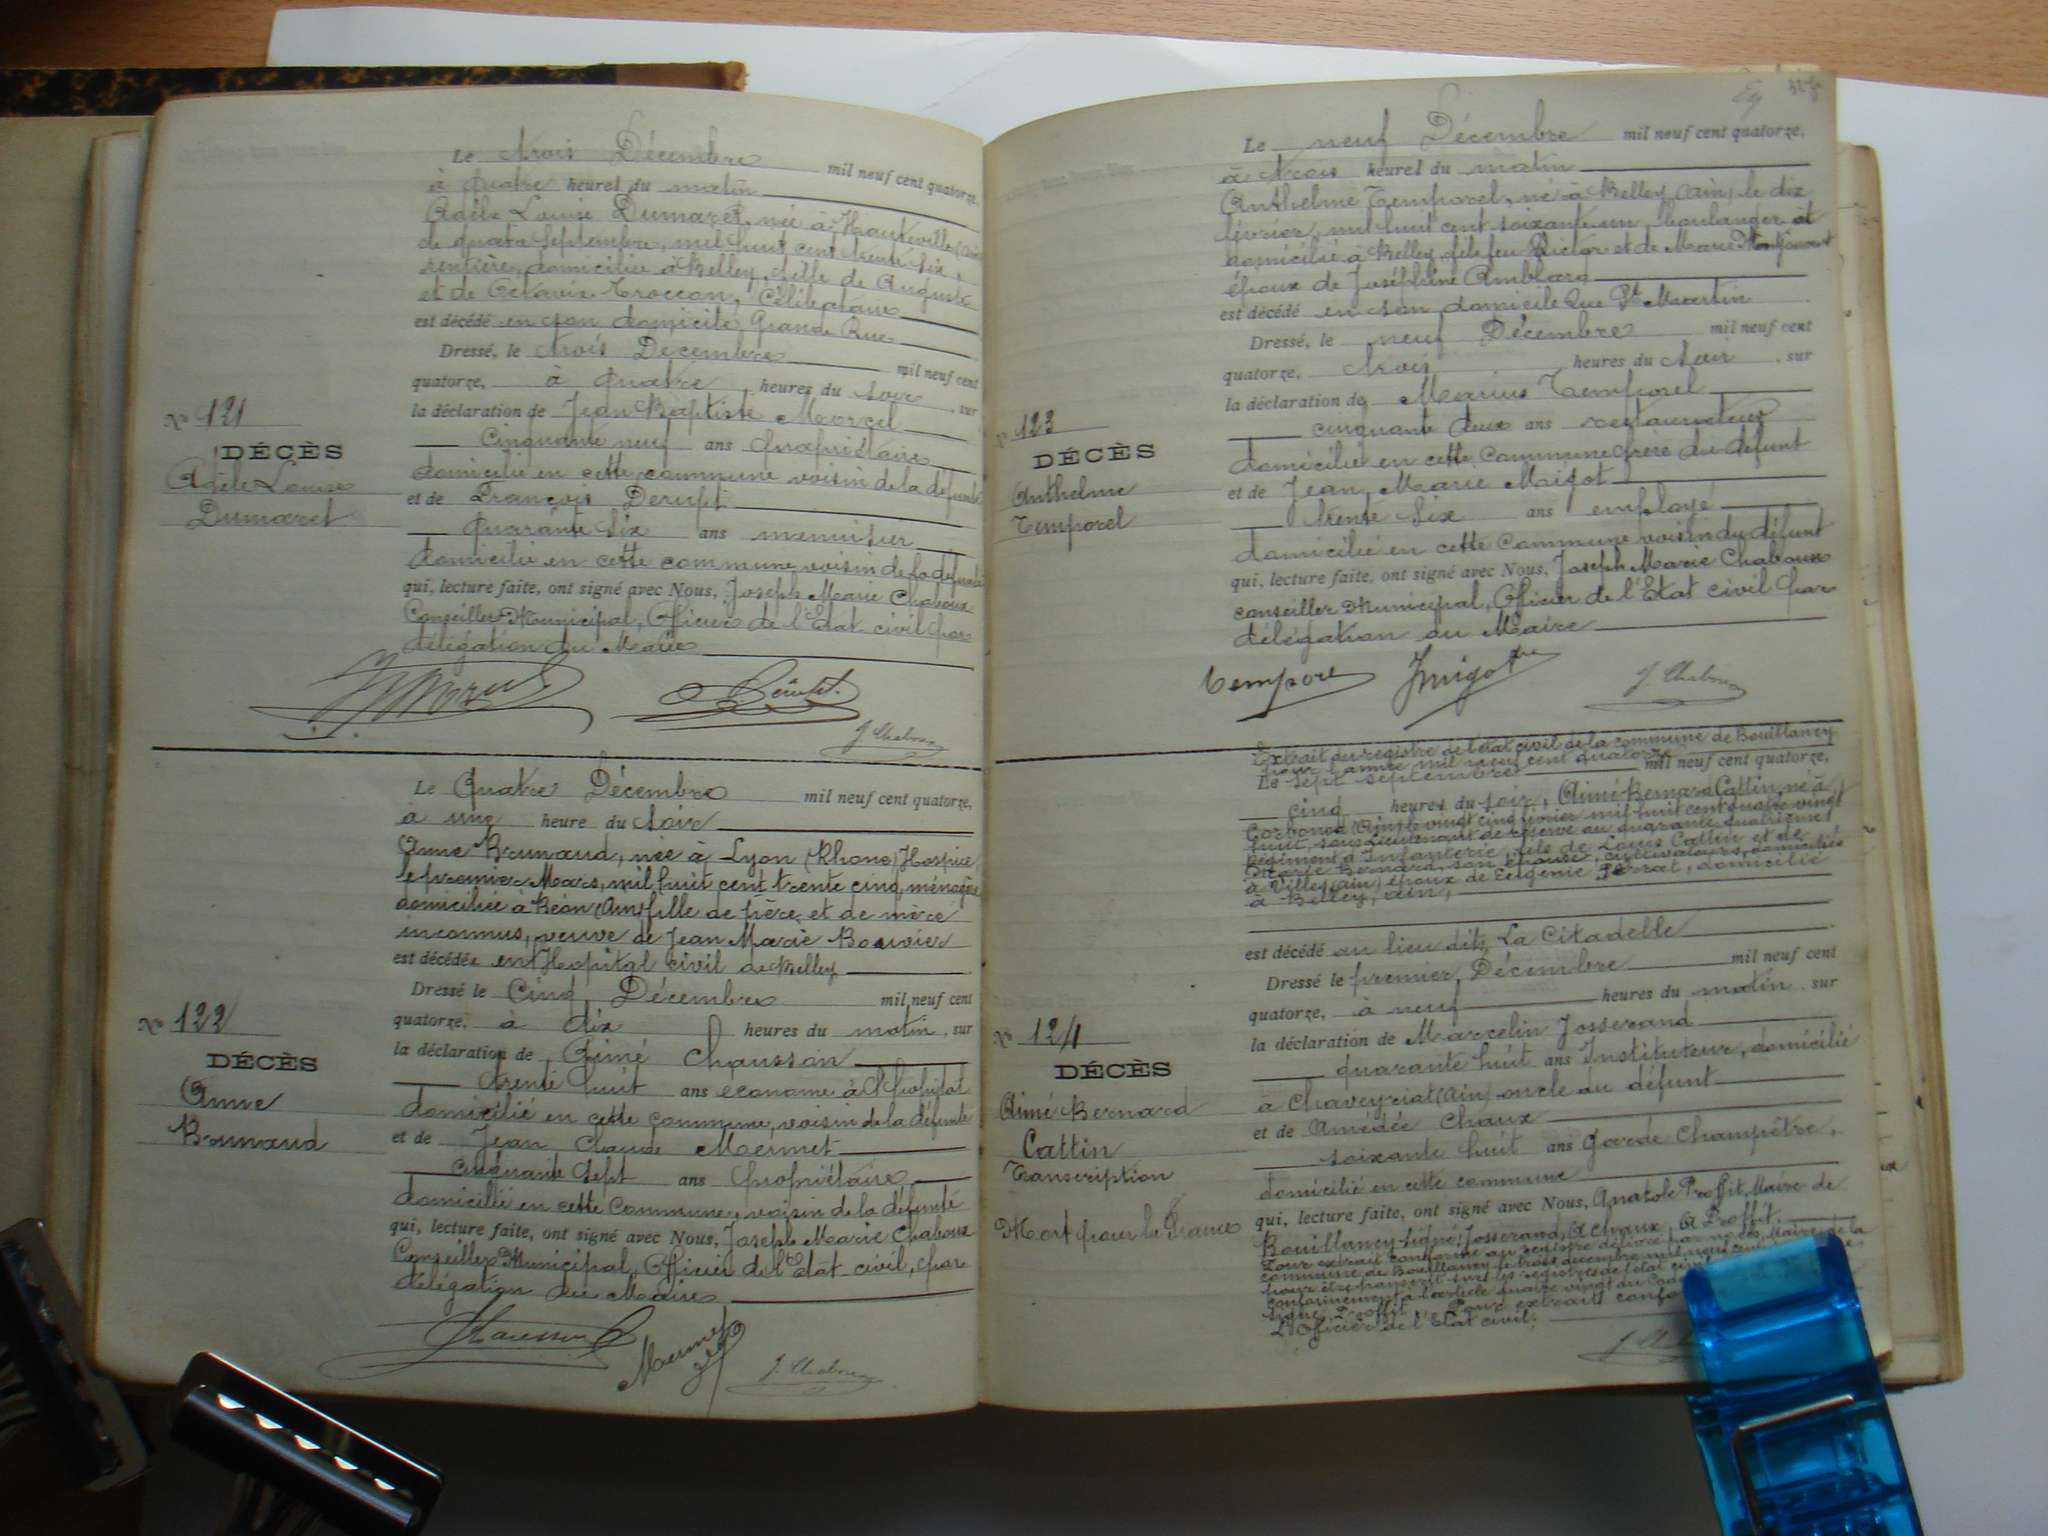 Le trois Décembre mil neuf cent quatorze,
à quatre heures du matin
Adèle Louise Dumaret, née à Hauteville (Ain)
le quatre Septembre, mil huit cent trente six,
rentière domiciliée à Belley, fille de Auguste
et de Octavie Troccon, Célibataire
est décédé en son domicile, Grande Rue
Dressé, le trois Décembre mil neuf cent
quatorze, à quatre heures du soir, sur
la déclaration de Jean Baptiste Morcel
cinquante neuf ans propriétaire
domicilié en cette commune voisin de la défunte
et de François Derupt
quarante six ans menuisier
domicilié en cette commune voisin de la défunte
qui, lecture faite, ont signé avec Nous, Joseph Marie Chaboux
Conseiller Municipal, Officier de l'Etat civil par
délégation du Maire
N° 121
DÉCÈS
Adèle Louise
Dumaret
J. Chaboux
Le Quatre Décembre mil neuf cent quatorze,
à une heure du soir
Anne Brunaud, née à Lyon (Rhone) Hospice
le premier Mars, mil huit cent trente cinq, ménagère
domiciliée à Béon (Ain) fille de père et de mère
inconnus, veuve de Jean Marie Bouvier
est décédée en l'Hopital civil de Belley
Dressé le Cinq Décembre mil neuf cent
quatorze, à dix heures du matin, sur
la déclaration de Aimé Chausson
trente huit ans econome à l'Hopital
domicilié en cette commune, voisin de la défunte
et de Jean Claude Mermet
cinquante sept ans propriétaire
domicilié en cette commune, voisin de la défunte
qui, lecture faite, ont signé avec Nous, Joseph Marie Chaboux
Conseiller Municipal, Officier de l'Etat civil, par
délégation du Maire
N° 122
DÉCÈS
Anne
Brunaud
Chausson
Mermet
J. Chaboux
Le neuf Décembre mil neuf cent quatorze,
à trois heures du matin
Anthelme Temporel, né à Belley (Ain) le dix
février, mil huit cent soixante un, boulanger
domicilié à Belley, fils feu Victor et de Marie
époux de Joséphine Amblard
est décédé en son domicile Rue St Martin
Dressé, le neuf Décembre mil neuf cent
quatorze, trois heures du soir, sur
la déclaration de Marius Temporel
cinquante deux ans restaurateur
domicilié en cette commune frère du défunt
et de Jean Marie Migot
trente six ans employé
domicilié en cette commune voisin du défunt
qui, lecture faite, ont signé avec Nous, Joseph Marie Chaboux
conseiller Municipal, Officier de l'Etat civil par
délégation du Maire
N° 123
DÉCÈS
Anthelme
Temporel
Temporel
J. Chaboux
Extrait du registre de l'état civil de la commune de Bouillancy
pour l'année mil neuf cent quatorze
Le sept septembre mil neuf cent quatorze,
cinq heures du soir, Aimé Bernard Cattin, né à
Corbonod (Ain) le vingt cinq février mil huit cent quatre vingt
huit, sous Lieutenant de réserve au quarante quatrième
Régiment d'Infanterie, fils de Louis Cattin et de
Marie Bernard, son épouse, cultivateurs, domiciliés
à Villes (Ain) époux de Eugenie domicilié
à Belley, Ain,
est décédé au lieu dit, La Citadelle
Dressé le premier Décembre mil neuf cent
quatorze, à neuf heures du matin, sur
la déclaration de Marcelin Josserand
quarante huit ans Instituteur, domicilié
à Chaveyriat (Ain) oncle du défunt
et de Amédée Chaux
soixante huit ans Garde Champêtre,
domicilié en cette commune
qui, lecture faite, ont signé avec Nous, Anatole Proffit, Maire de
Bouillancy signé: Josserand, A Chaux, A Proffit.
Pour extrait conforme au registre délivré par nous, Maire de la
commune de Bouillancy le trois décembre mil neuf cent
pour être transcrit sur les registres de l'état civil
conformément à l'article quatre vingt du Code
signé: Proffit Pour extrait
L'Officier de l'Etat civil:
N° 124
DÉCÈS
Aimé Bernard
Cattin
Transcription
Mort pour la France